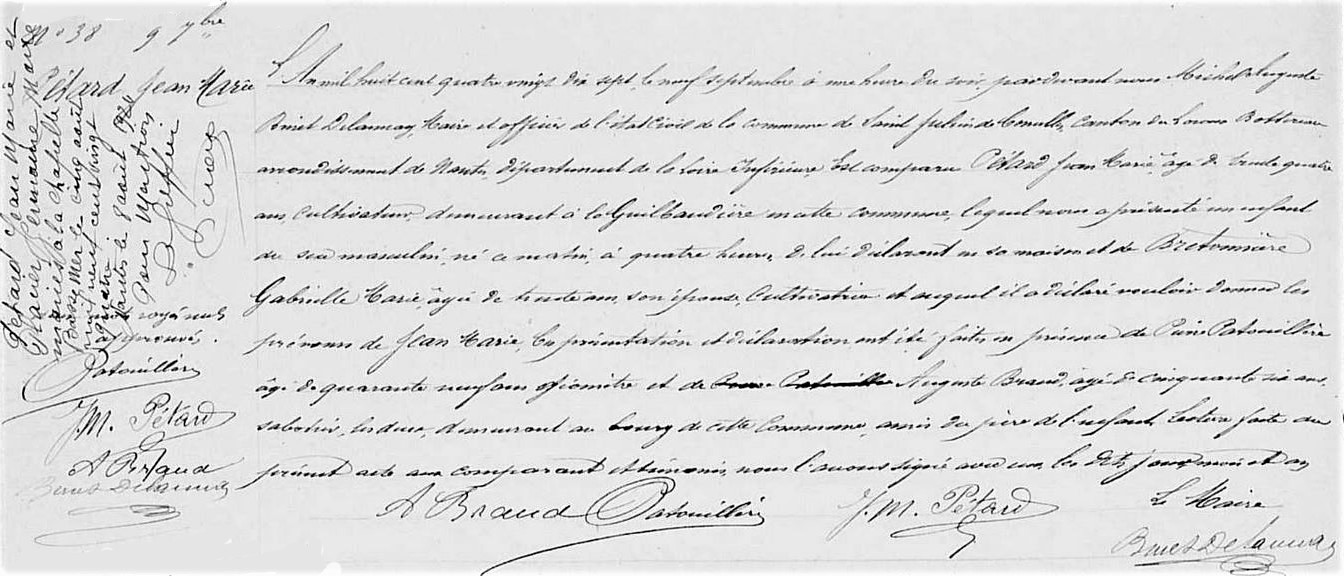 N° 38 9 7bre
Pétard Jean Marie
L'An mil huit cent quatre vingt dix sept, le neuf septembre à une heure du soir, pardevant nous Michel Auguste
Binet Delaunay, Maire et officier de l'état Civil de la commune de Saint Julien de Concelles, Canton du Loroux Bottereau
arrondissement de Nantes, département de la Loire Inférieure, Est comparu Pétard Jean Marie, âgé de trente quatre
ans, cultivateur, demeurant à la Guilbaudière en cette commune, lequel nous a présenté un enfant
du sexe masculin, né ce matin, à quatre heures, de lui déclarant en sa maison et de Bretonnière
Gabrielle Marie, âgée de trente ans, son épouse, Cultivatrice et auquel il a déclaré vouloir donner les
prénoms de Jean Marie, Ces présentation et déclaration ont été faites en présence de Pierre Patouillère
âgé de quarante neuf ans, et de Auguste Braud, âgé de cinquante six ans,
sabotier, les deux, demeurant au bourg de cette Commune, amis du père de l'enfant. Lecture faite du
présent acte aux comparant et témoins, nous l'avons signé avec eux, les dits jour, mois et an
A Braud Patouillère J. M. Pétard Le Maire
Binet Delaunay
Pétard Jean Marie et
Germaine Marie
mariés à la Chapelle
Basse Mer le cinq août
mil neuf cent vingt
quatre
Nantes le 8 août 1924
Pour Mention
Le Greffier
mots rayés nuls
approuvés.
Patouillère
J. M. Pétard
A Braud
Binet Delaunay